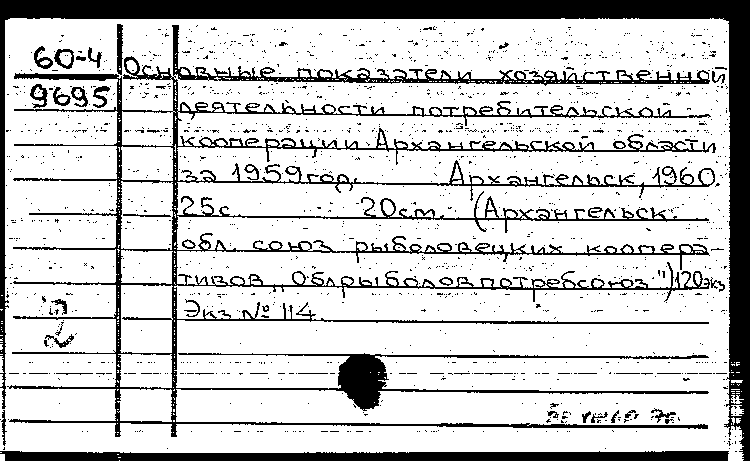 60-4
9695
Основные показатели хозяйственной
деятельности потребительской
кооперации Архангельской области
за 1959год. Архангельск, 1960.
25с. 20см. (Архангельск.
обл. союз рыболовецких коопера-
тивов „Облрыболовпотребсоюз") 120экз
Экз № 114.
2